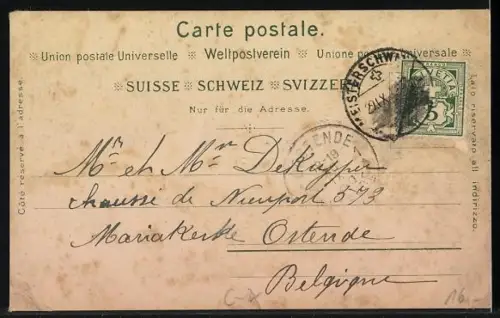 Carte postale.
Union postale Universelle Weltpostverein Unione postale universale
SUISSE SCHWEIZ SVIZZERA
Nur für die Adresse.
Côté réservé à l'adresse.
Lato riservato all'indirizzo.
MEISTERSCHWA
HELVETIA
5
ENDE
Mr et Mme DeKuyper
chaussée de Nieuport 573
Mariakerke Ostende
Belgique
16.-